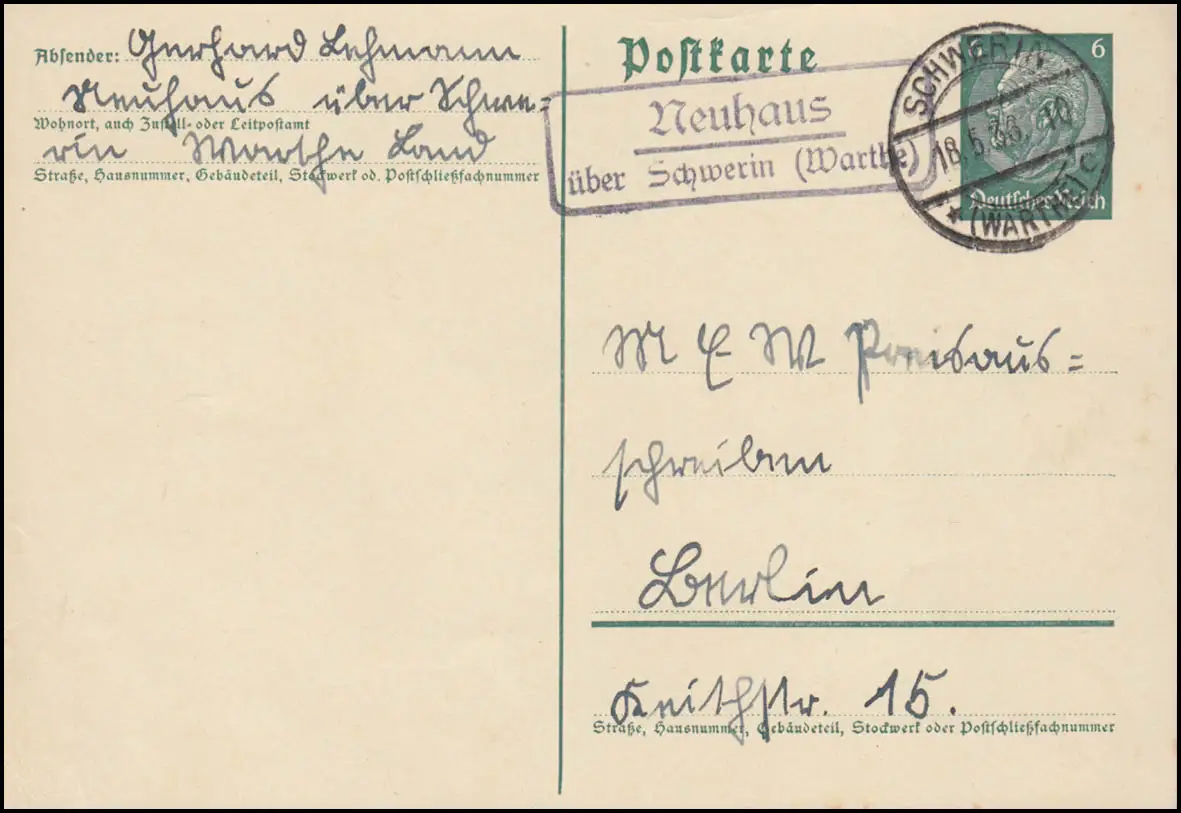 Absender: Gerhard Lehmann
Neuhaus über Schwe=
Wohnort, auch Zustell- oder Leitpostamt
rin Warthe Land
Straße, Hausnummer, Gebäudeteil, Stockwerk od. Postschließfachnummer
Postkarte
Neuhaus
über Schwerin (Warthe)
SCHWERIN
18.5.36. 10
* (WARTHE) c
6
Deutsches Reich
M E W Preisaus=
schreiben
Berlin
Keithstr. 15.
Straße, Hausnummer, Gebäudeteil, Stockwerk oder Postschließfachnummer